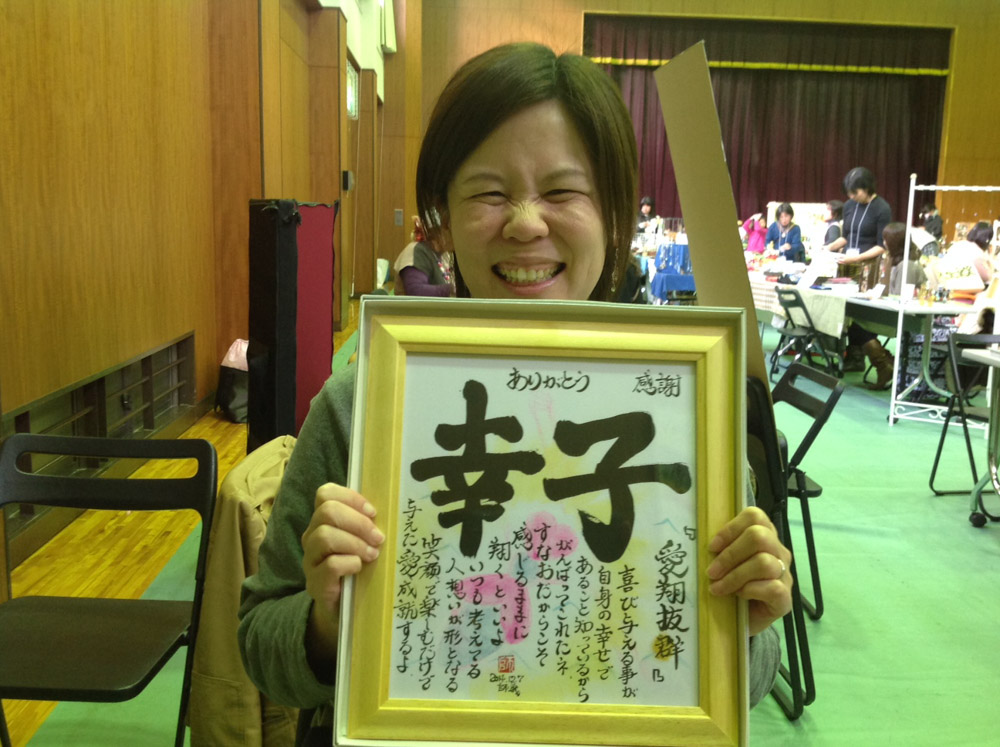 ありがとう 感謝
幸子
「愛翔抜群」
喜び与える事が
自身の幸せで
あること知っているから
がんばってこれたネ
すなおだからこそ
感じるままに
翔くといいよ
いつも考えてる
人想いが形となる
笑顔で楽しむだけで
与えた愛成就するよ
2014.12.7